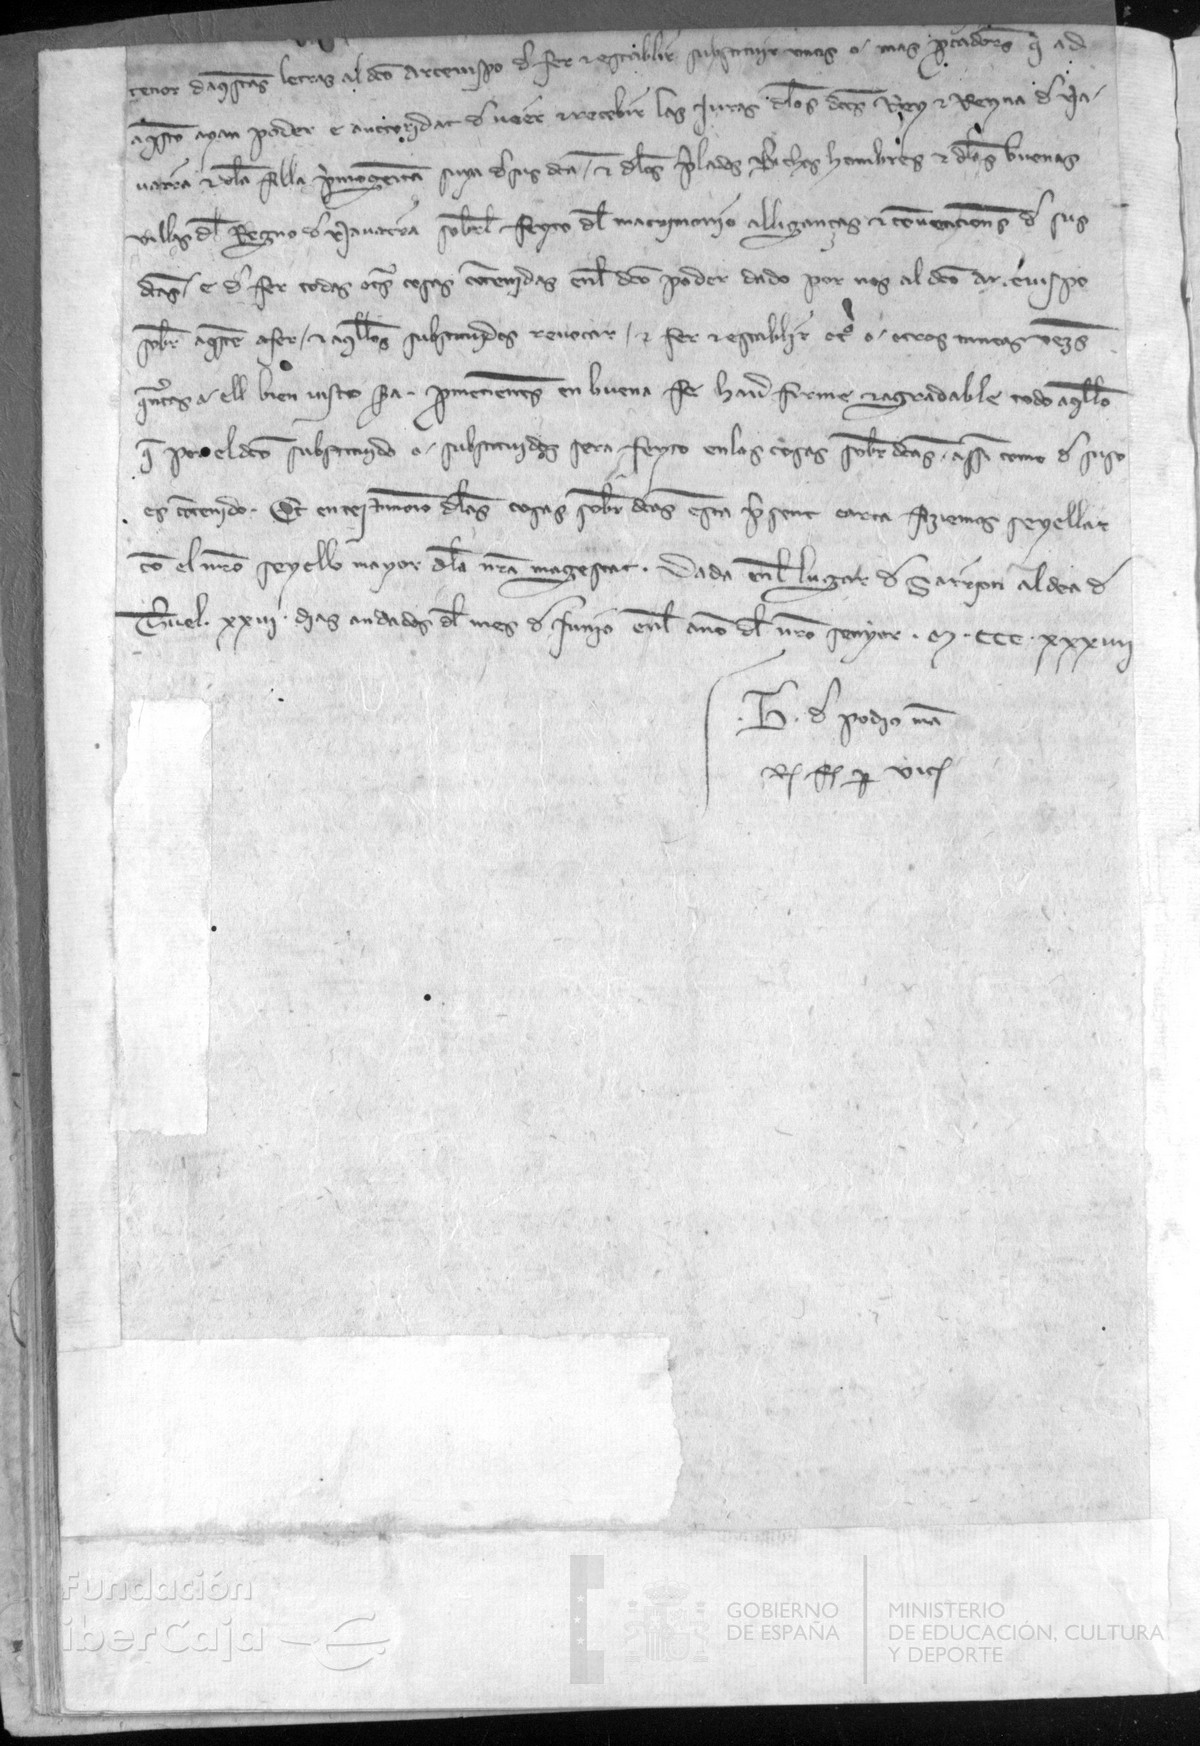 tenor daqstas letras al dco Arceuispo d fer & establir substituir unas o mas pcadors q ad
aqsto ayan poder e auctoridat d ueer & recebir las Juras dlos dcos Rey & Reyna d Na-
uarra & dla filla pmogenita suya d sus dca / & dlos plados Richos hombres & dlas buenas
villas dl Regno d Nauarra sobrl feyto dl matrimonio alligançças & couenciens d sus
dcas / e d fer todas otras cosas cotenidas enl dco poder dado por nos al dco Arceuispo
sobr aqste afer / & aqllos substituydos reuocar / & fer & establir otro o otros tantas uezs
quntas a ell bien uisto sia . pmetients en buena fe hauer firme & agradable todo aqllo
q por el dco substituido o substituidos sera feyto en las cosas sobr dcas . assi como d suso
es cotenido . Et en testimonio dlas cosas sobr dcas esta psent carta fiziemos seyellar
co el nro seyello mayor dla nra magestat . Dada enl lugar d Sarrion aldea d
Teruel . xxvii . dias andados dl mes d Junio enl anno dl nro senyor . M . CCC . xxxvii
. B . d podio ma
Rs fs p vics
Fundación
iberCaja
GOBIERNO
DE ESPAÑA
MINISTERIO
DE EDUCACIÓN, CULTURA
Y DEPORTE